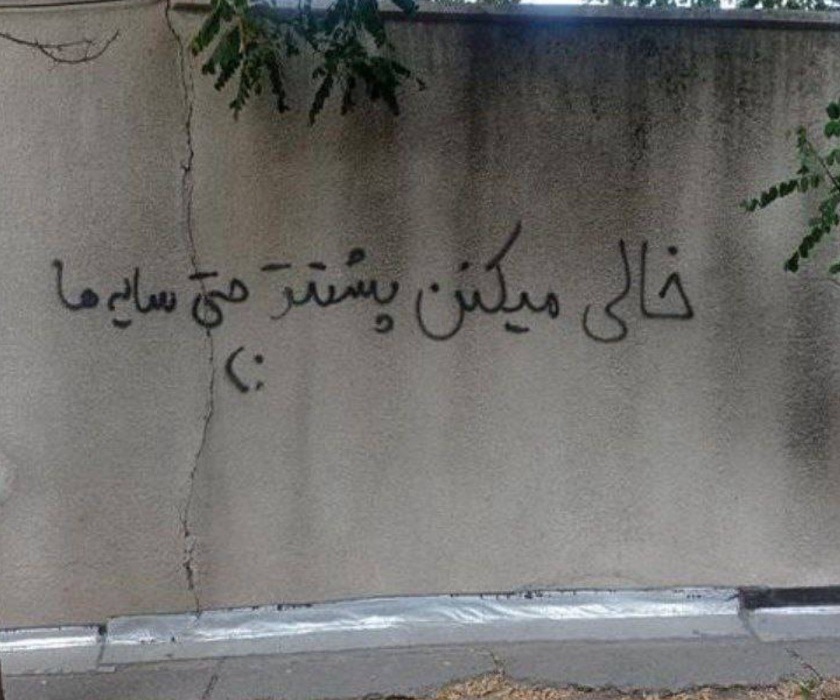 خالی میکنن پشتتو حتی سایه ها
:(